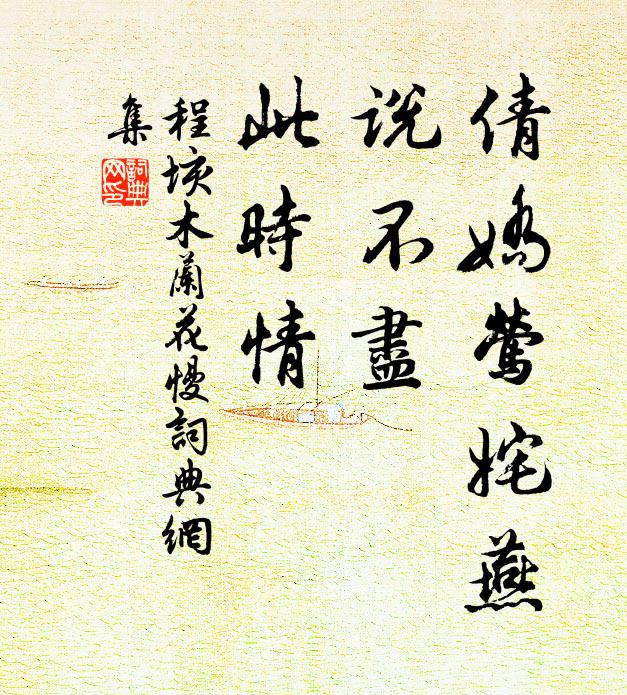 倩嬌鶯姹燕
說不盡
此時情
程垓木蘭花慢詞典網
集
詞典
网印